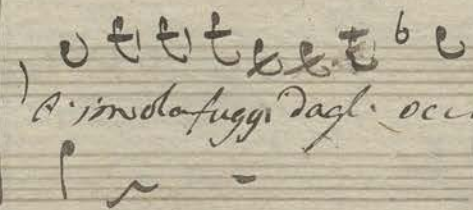 s'invola fuggi dagl' occ